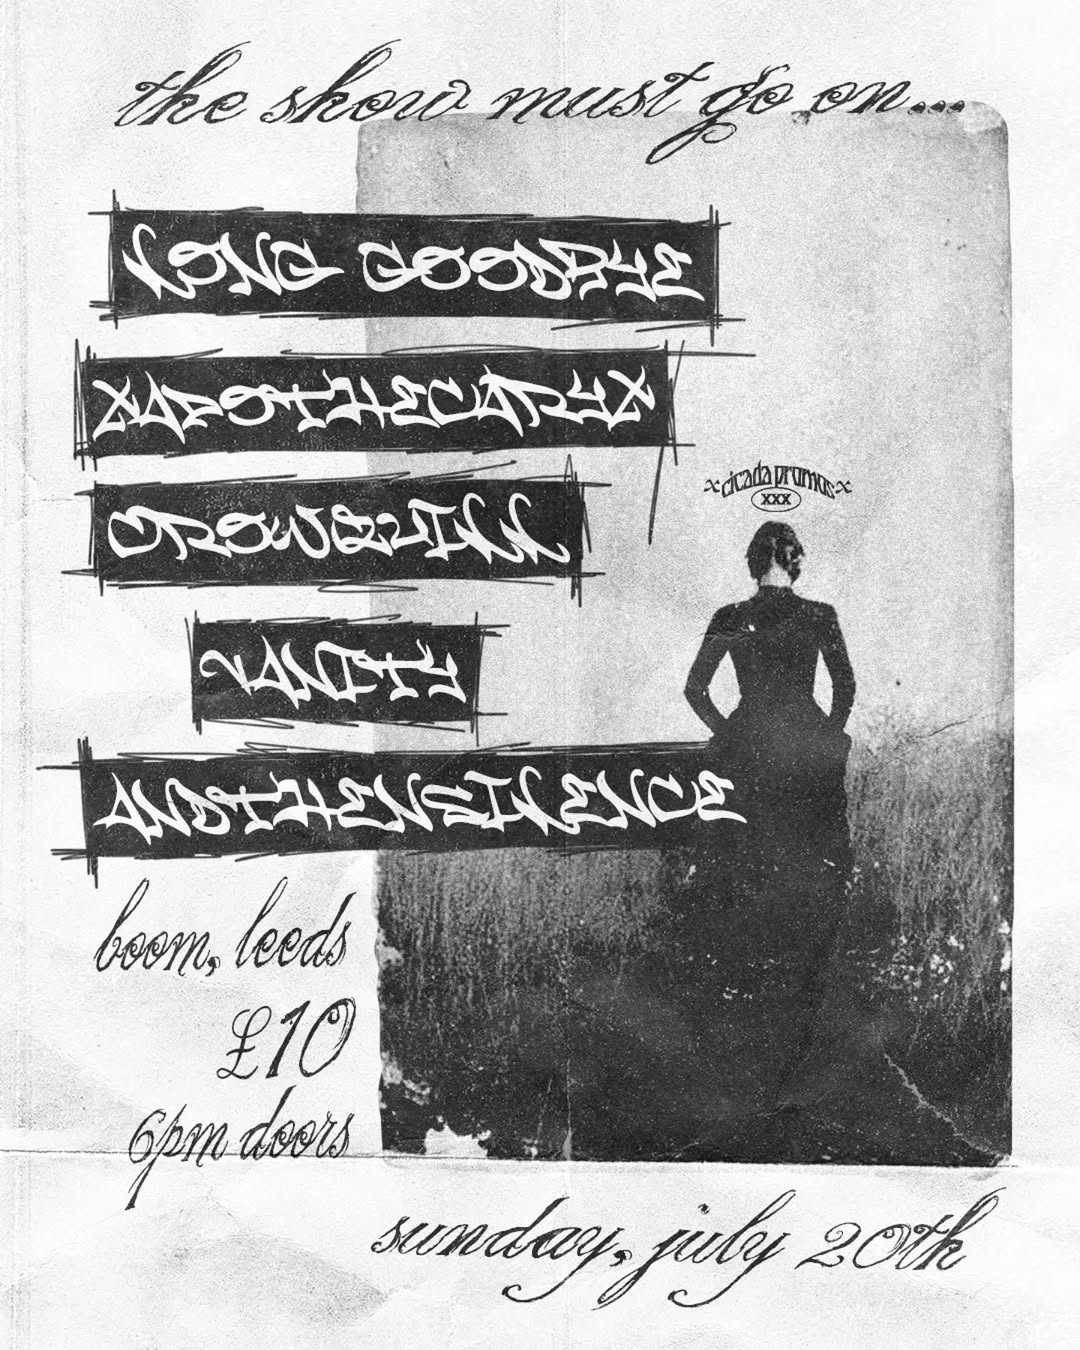 the show must go on...
LONG GOODBYE
XAPOTHECARYX
CROWQUILL
VANITY
ANDTHENSILENCE
x cicada promos x
xxx
boom, leeds
£10
6pm doors
sunday, july 20th